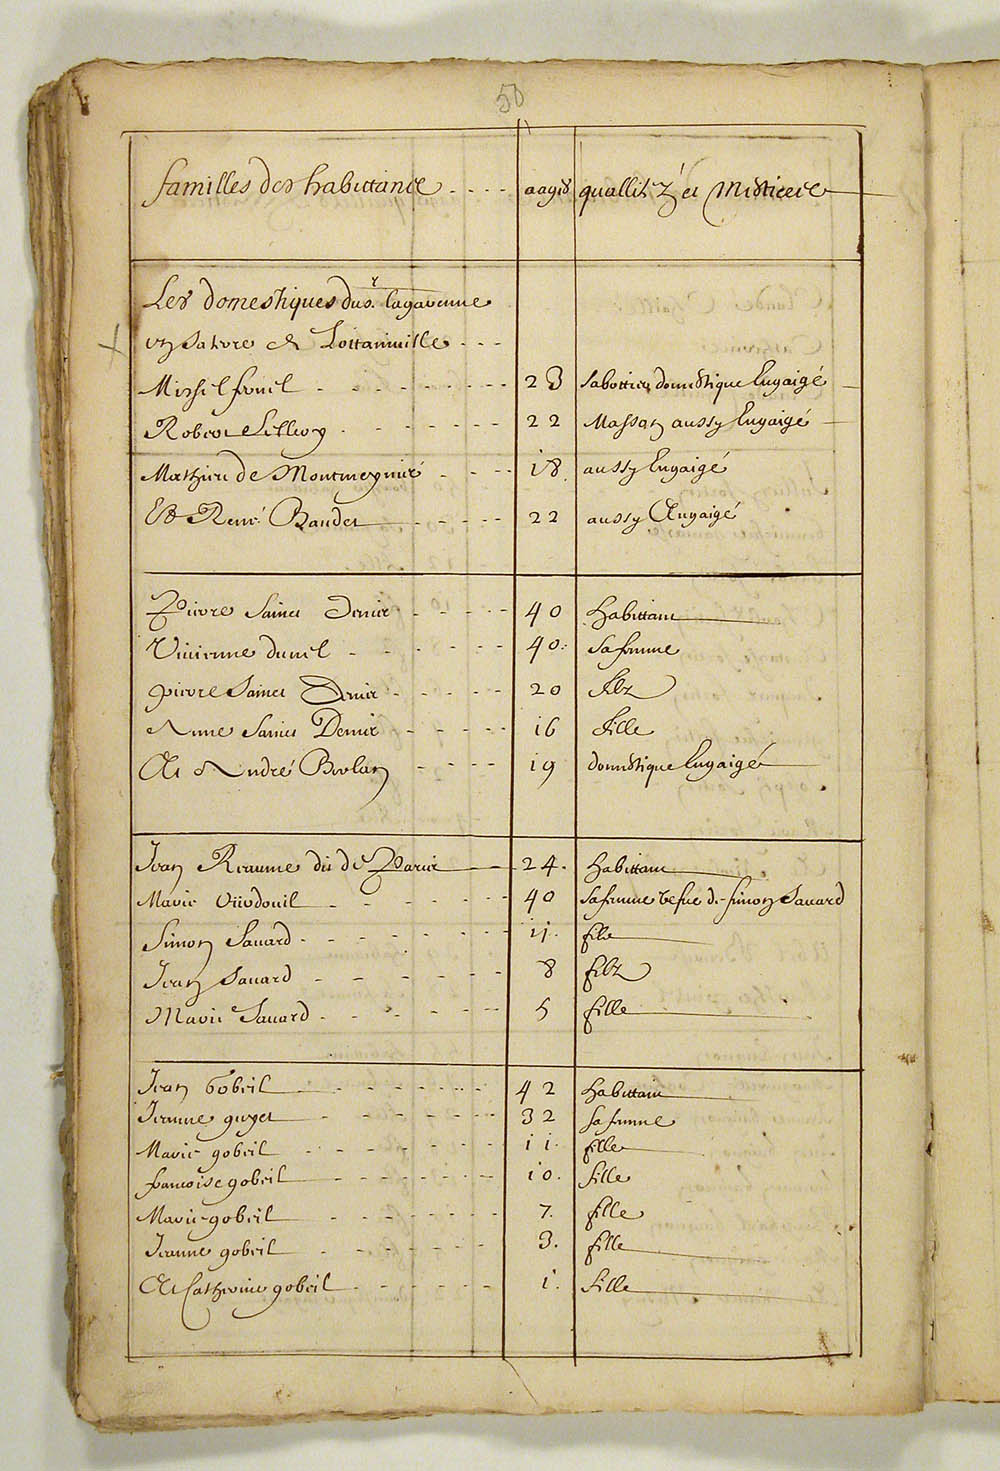 50
familles des habittans aages quallitéz et Mestiers
Les domestiques du sr. lagarenne
en sa terre de Lottainville
Michel 23 sabottier domestique Engaigé
Robert 22 Masson aussy Engaigé
Mathieu de Montmeynié 18. aussy Engaigé
Et René Baudet 22 aussy Engaigé
Pierre Sainct Denis 40 habittant
Vivienne Bunel 40. sa femme
pierre Sainct Denis 20 filz
Anne Sainct Denis 16 fille
Et André Berlan 19 domestique Engaigé
Jean Reaume dit de Paris 24. habittant
Marie 40 sa femme vefue de simon Sauard
Simon Sauard 11. filz
Jean Sauard 8 filz
Marie Sauard 5 fille
Jean Gobeil 42 habittant
Jeanne guyet 32 sa femme
Marie gobeil 11. fille
francoise gobeil 10. fille
Marie gobeil 7. fille
Jeanne gobeil 3. fille
Et Catherine gobeil 1. fille